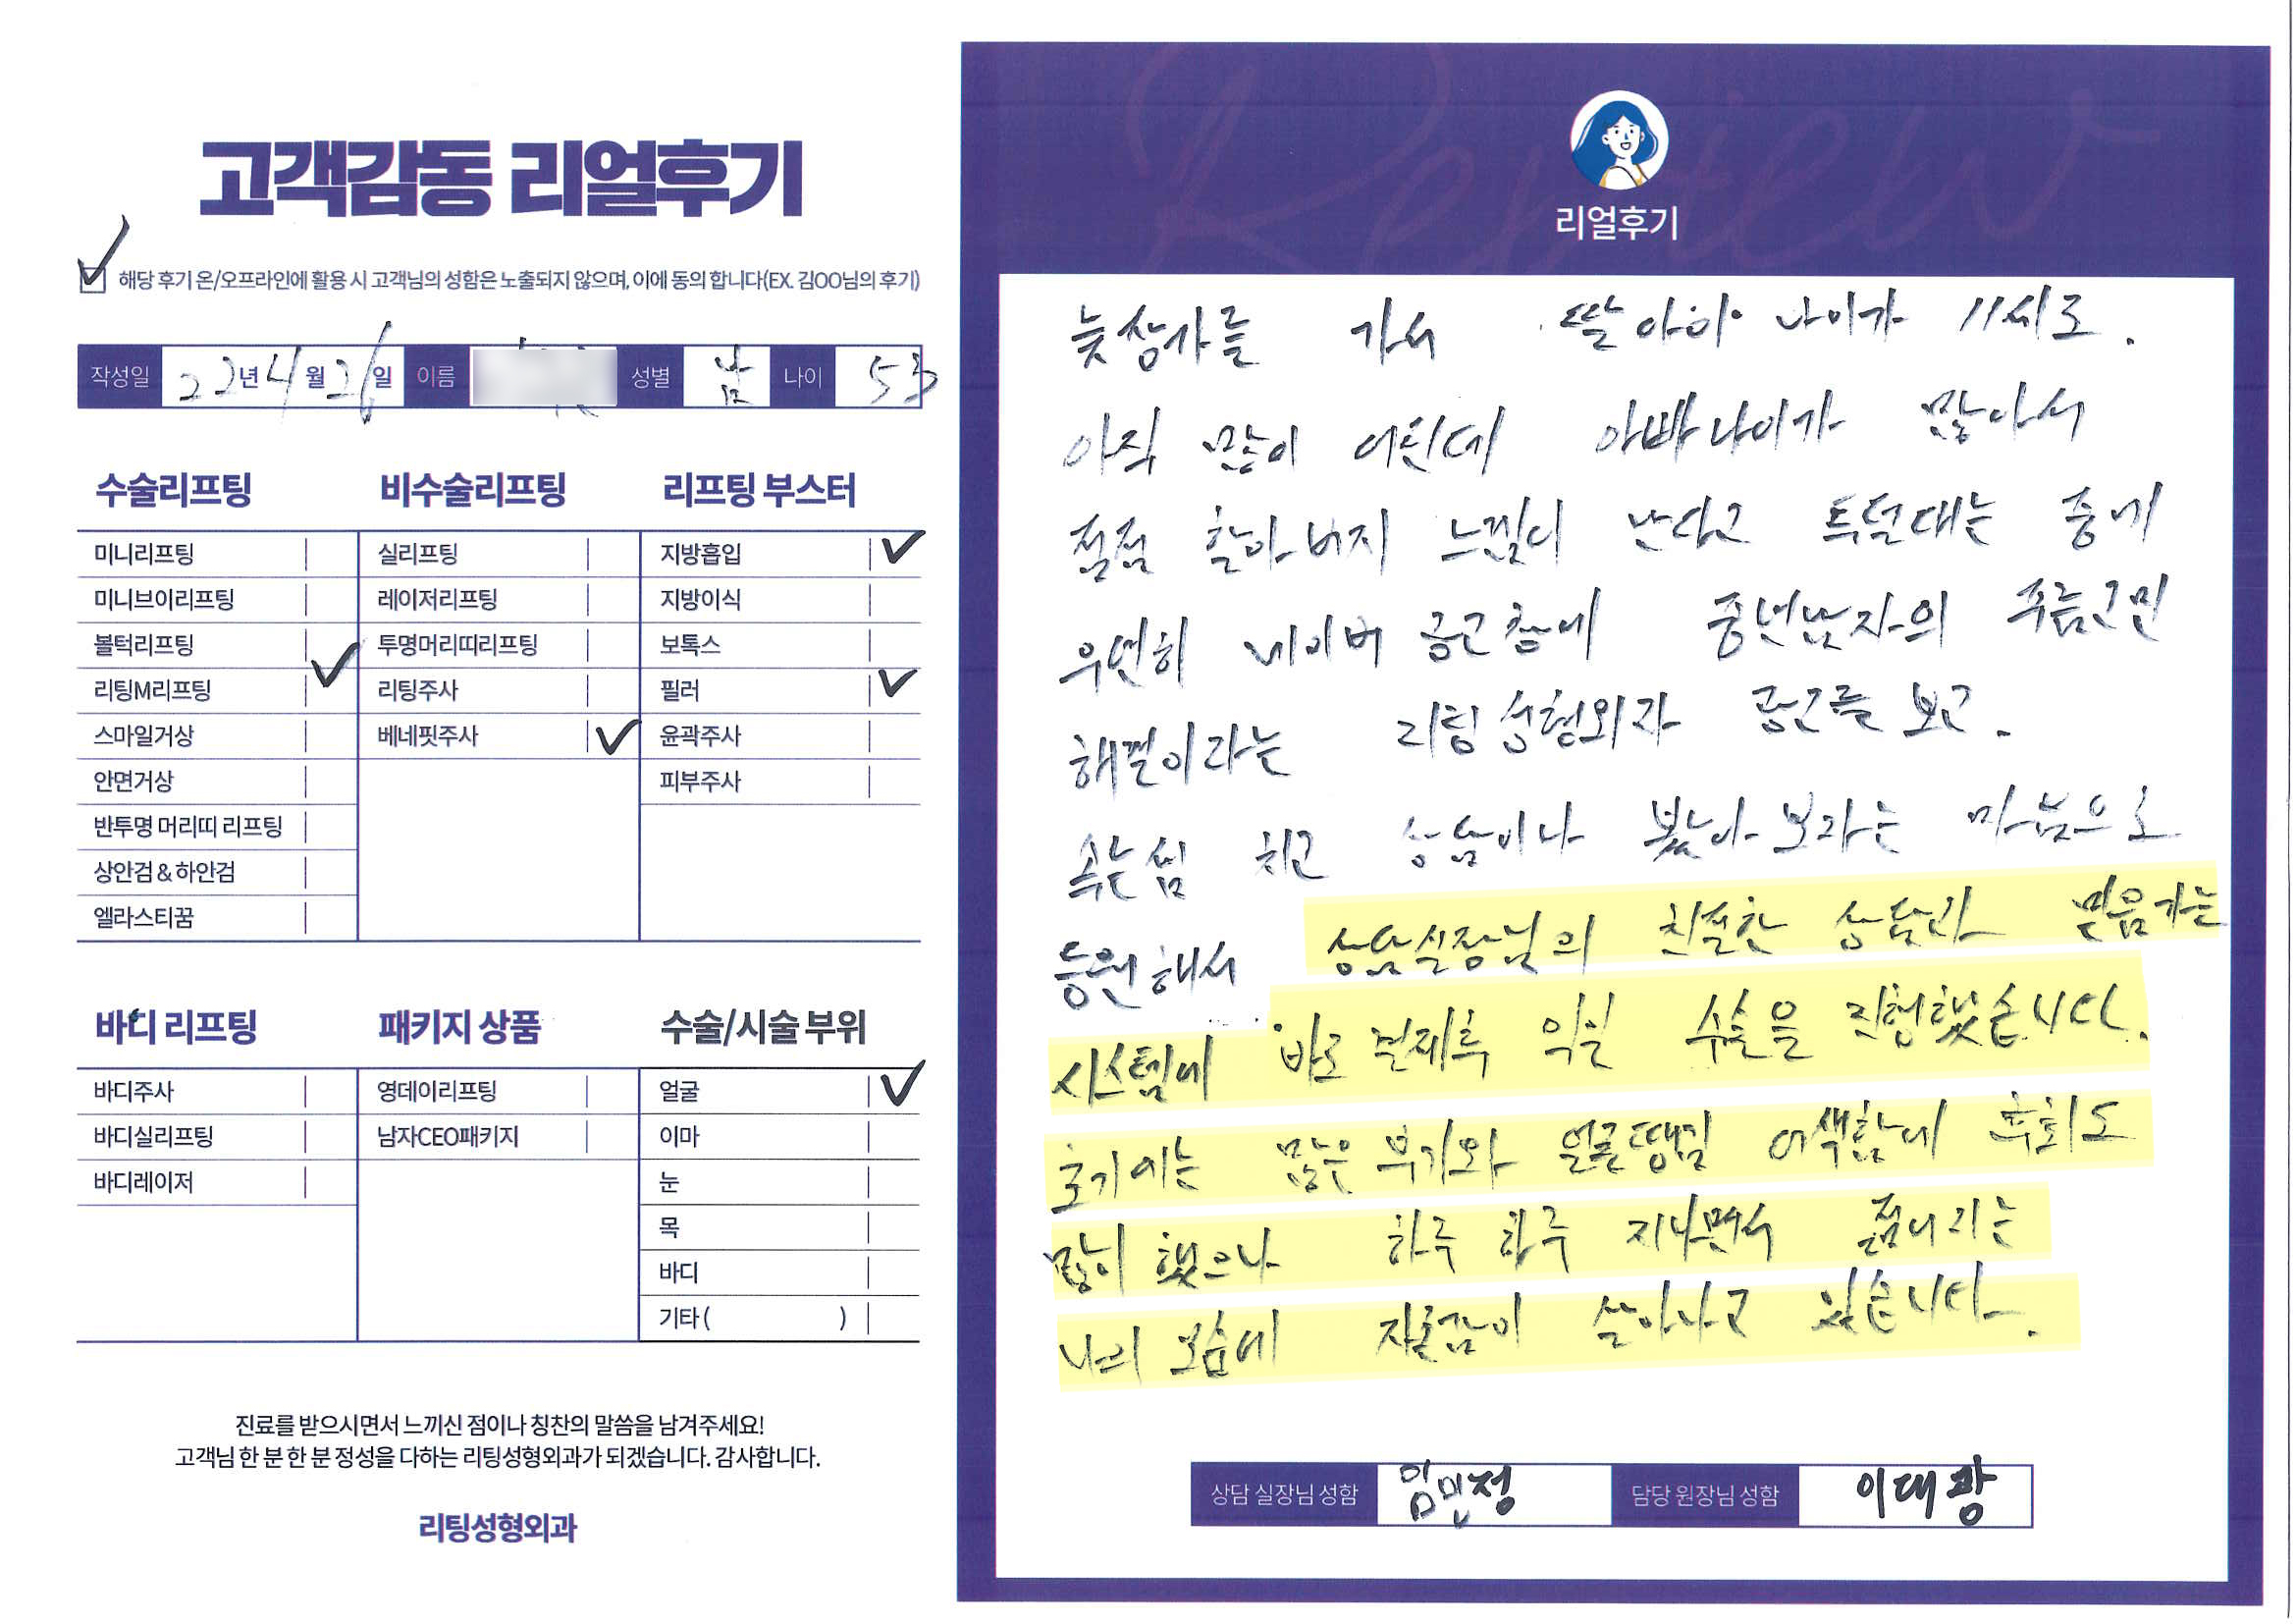 고객감동 리얼후기
해당 후기 온/오프라인에 활용 시 고객님의 성함은 노출되지 않으며, 이에 동의 합니다(EX. 김OO님의 후기)
작성일 22년 4월 26일 이름 성별 남 나이 53
수술리프팅
미니리프팅
미니브이리프팅
볼턱리프팅
리팅M리프팅
스마일거상
안면거상
반투명 머리띠 리프팅
상안검 & 하안검
엘라스티꿈
비수술리프팅
실리프팅
레이저리프팅
투명머리띠리프팅
리팅주사
베네핏주사
리프팅 부스터
지방흡입
지방이식
보톡스
필러
윤곽주사
피부주사
바디 리프팅
바디주사
바디실리프팅
바디레이저
패키지 상품
영데이리프팅
남자CEO패키지
수술/시술 부위
얼굴
이마
눈
목
바디
기타 ( )
진료를 받으시면서 느끼신 점이나 칭찬의 말씀을 남겨주세요!
고객님 한 분 한 분 정성을 다하는 리팅성형외과가 되겠습니다. 감사합니다.
리팅성형외과
Review
리얼후기
늦장가를 가서 딸아이 나이가 11세로.
아직 많이 어린데 아빠나이가 많아서
점점 할아버지 느낌이 난다고 투덜대는 중에
우연히 네이버 광고창에 중년남자의 주름고민
해결이라는 리팅성형외과 광고를 보고.
속는셈 치고 상담이나 받아보자는 마음으로
등원해서 상담실장님의 친절한 상담과 믿음가는
시스템에 바로 결제후 익일 수술을 진행했습니다.
초기에는 많은 부기와 얼굴땡김 어색함에 후회도
많이 했으나 하루 하루 지나면서 젊어지는
나의 모습에 자존감이 살아나고 있습니다.
상담 실장님 성함 임민정 담당 원장님 성함 이대광